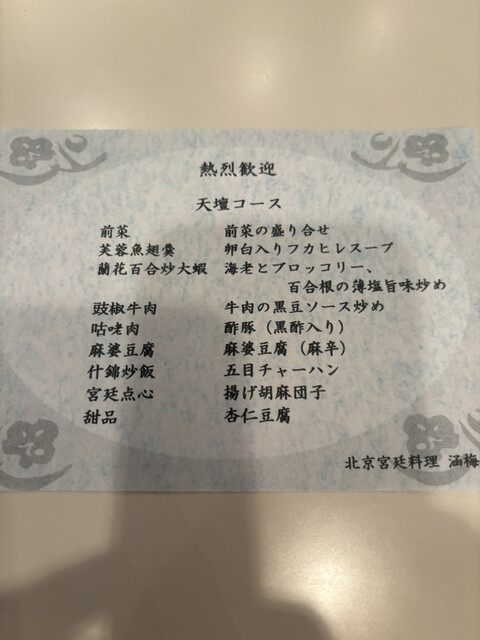 熱烈歓迎
天壇コース
前菜 前菜の盛り合せ
芙蓉魚翅羹 卵白入りフカヒレスープ
蘭花百合炒大蝦 海老とブロッコリー、
百合根の薄塩旨味炒め
豉椒牛肉 牛肉の黒豆ソース炒め
咕咾肉 酢豚（黒酢入り）
麻婆豆腐 麻婆豆腐（麻辛）
什錦炒飯 五目チャーハン
宮廷点心 揚げ胡麻団子
甜品 杏仁豆腐
北京宮廷料理 涵梅